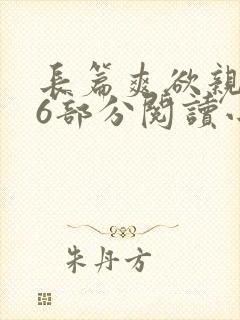 長篇爽欲親
6部分閱讀
朱丹方